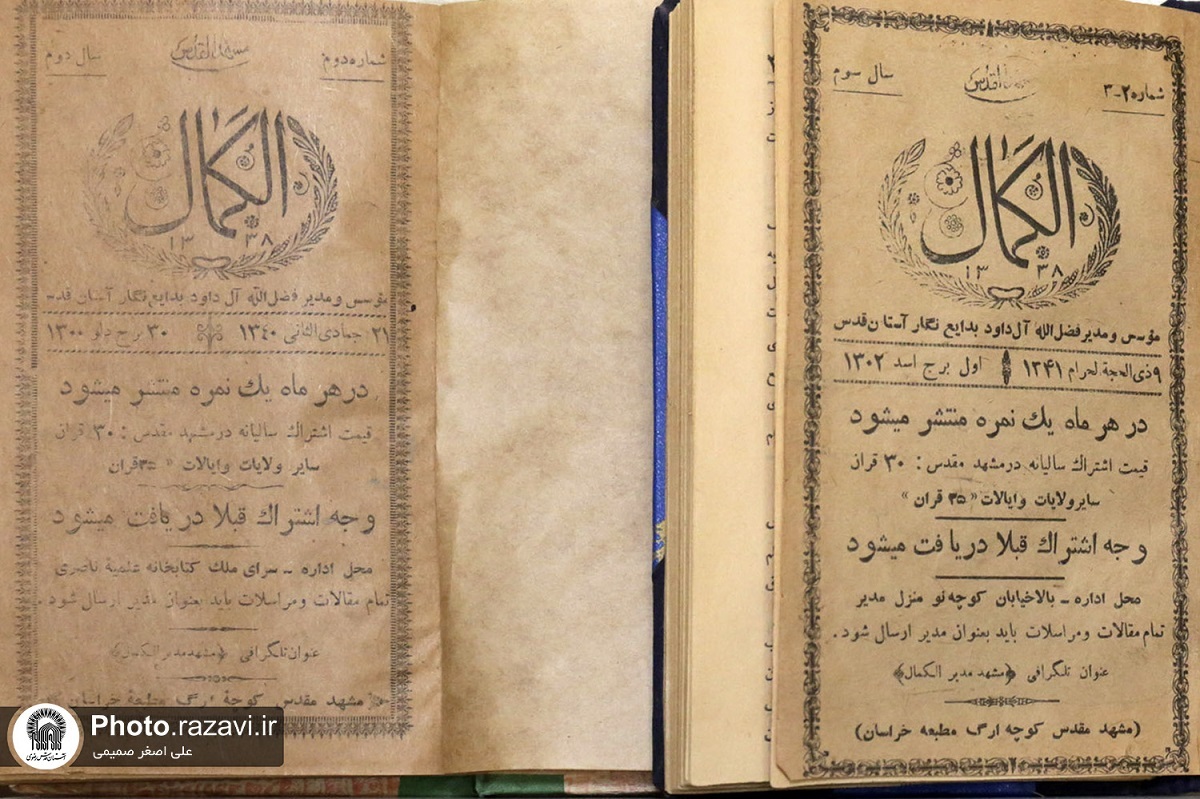 شماره ۲-۳
سال سوم
الکمال
۱۳۳۸
مؤسس و مدیر فضل‌الله آل داود بدایع نگار آستان قدس
۹ ذی‌الحجة لحرام ۱۳۴۱
اول برج اسد ۱۳۰۲
در هر ماه یك نمره منتشر میشود
قیمت اشتراك سالیانه در مشهد مقدس : ۳۰ قران
سایر ولایات و ایالات « ۳۵ قران »
وجه اشتراك قبلا دریافت میشود
محل اداره ـ بالاخیابان کوچه نو منزل مدیر
تمام مقالات و مراسلات باید بعنوان مدیر ارسال شود .
عنوان تلگرافی ﴿مشهد مدیر الکمال﴾
(مشهد مقدس کوچه ارگ مطبعه خراسان)
شماره دوم
سال دوم
الکمال
۱۳۳۸
مؤسس و مدیر فضل‌الله آل داود بدایع نگار آستان قدس
۲۱ جمادی‌الثانی ۱۳۴۰
۳۰ برج دلو ۱۳۰۰
در هر ماه یك نمره منتشر میشود
قیمت اشتراك سالیانه در مشهد مقدس : ۳۰ قران
سایر ولایات و ایالات « ۳۵ قران
وجه اشتراك قبلا دریافت میشود
محل اداره ـ سرای ملك کتابخانه علمیه ناصری
تمام مقالات و مراسلات باید بعنوان مدیر ارسال شود .
عنوان تلگرافی ﴿مشهد مدیر الکمال﴾
مشهد مقدس کوچهٔ ارگ مطبعهٔ خراسان
Photo.razavi.ir
علی اصغر صمیمی